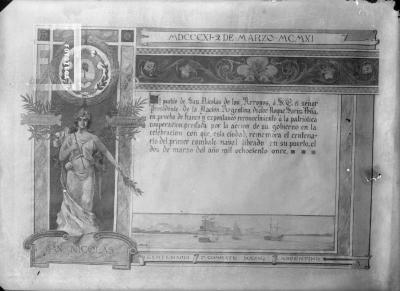 MDCCCXI-2 DE MARZO-MCMXI
El pueblo de San Nicolás de los Arroyos, á S. E. el señor
Presidente de la Nación Argentina, doctor Roque Saenz Peña,
en prueba de franco y espontáneo reconocimiento á la patriótica
cooperación prestada por la acción de su gobierno en la
celebración con que, esta ciudad, rememora el centena-
rio del primer combate naval librado en su puerto, el
dos de marzo del año mil ochocientos once.
SAN NICOLAS
CENTENARIO 1er COMBATE NAVAL ARGENTINO